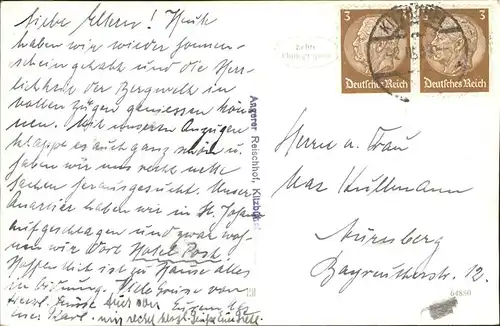 Liebe Eltern! Heute
haben wir wieder Sonnen-
schein gehabt und die Herr-
lichkeit der Bergwelt in
vollen Zügen geniessen kön-
nen. Mit unseren Anzügen
klappt es auch ganz schön u.
haben wir uns recht nette
Sachen herausgesucht. Unser
Quartier haben wir in St. Johann
aufgeschlagen und zwar woh-
nen wir dort Hotel Post.
Hoffentlich ist zu Hause alles
in Ordnung. Viele Grüsse von
Eurem
Karl.
Angerer Reischhof, Kitzbühel
3 3
Deutsches Reich Deutsches Reich
Echte
Photographie
Herrn u. Frau
Max Kullmann
Nürnberg
Bayreutherstr. 12.
64880